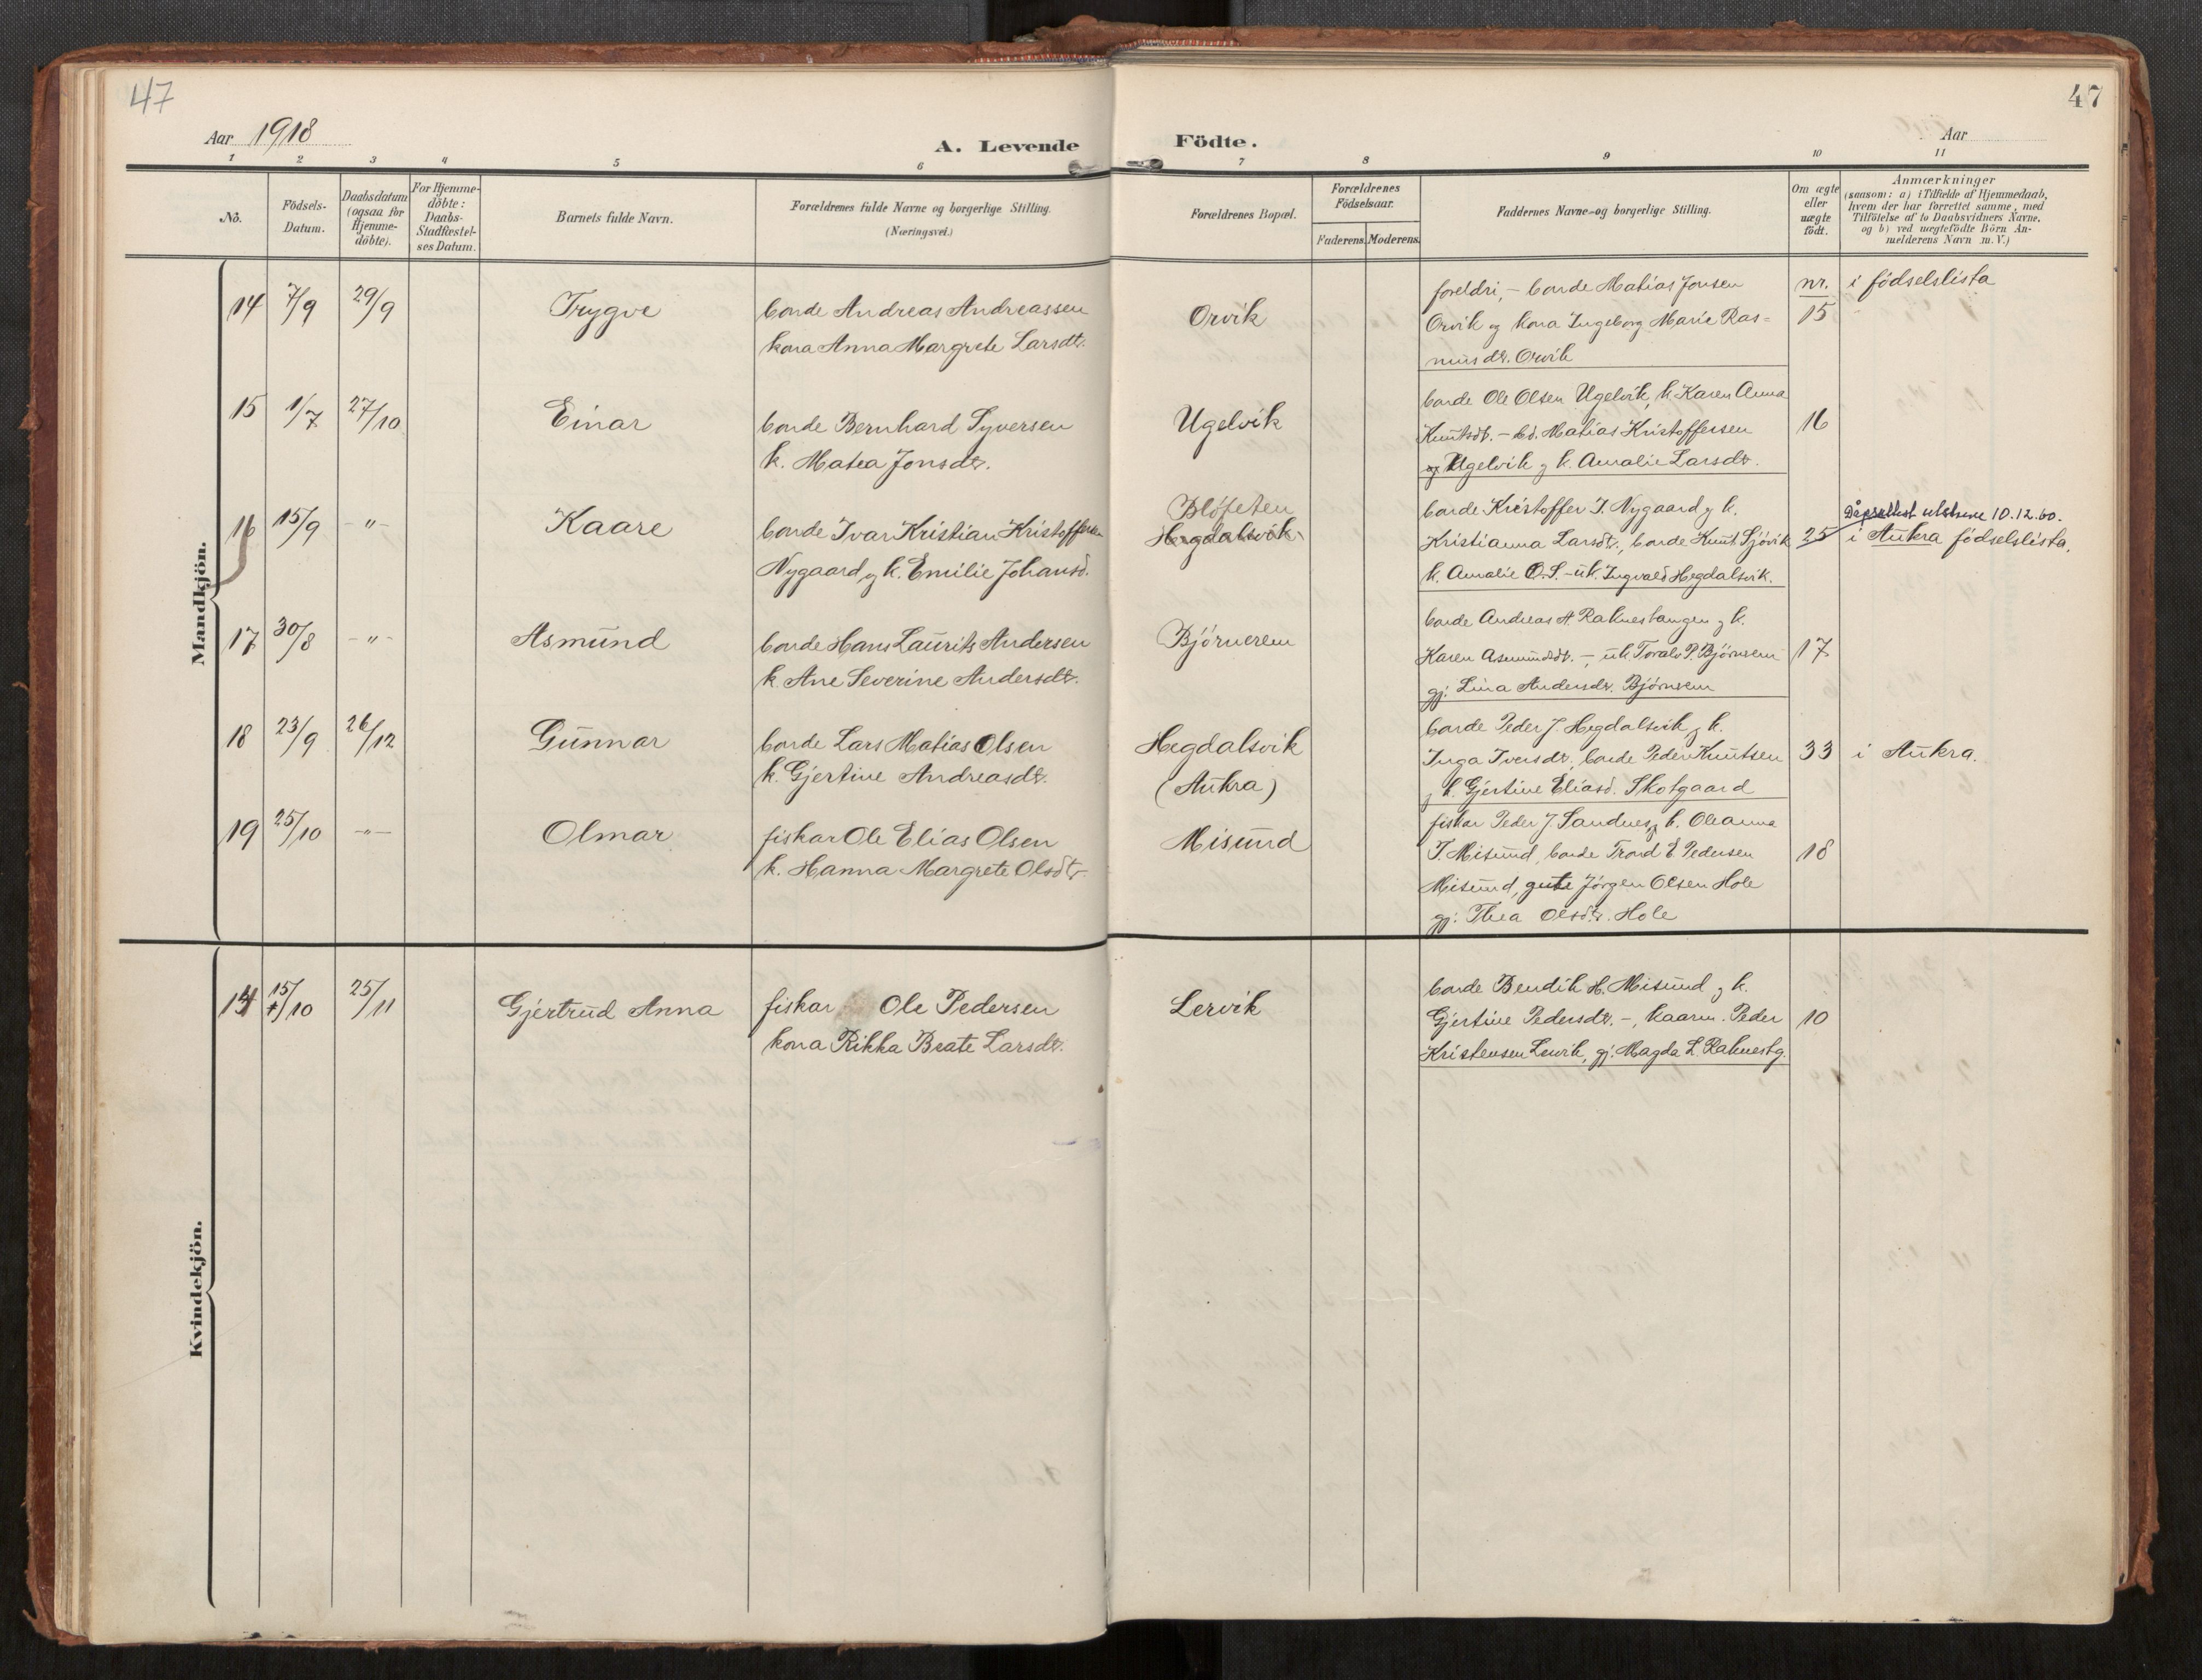 47
47
Aar 1918
A. Levende
Födte.
Aar
1 2 3 4 5 6 7 8 9 10 11
No.
Födsels-
Datum.
Daabsdatum
(ogsaa for
Hjemme-
döbte).
For Hjemme-
döbte:
Daabs-
Stadfæstel-
ses Datum.
Barnets fulde Navn.
Forældrenes fulde Navne og borgerlige Stilling.
(Næringsvei.)
Forældrenes Bopæl.
Forældrenes
Födselsaar.
Faderens. Moderens.
Faddernes Navne og borgerlige Stilling.
Om ægte
eller
uægte
födt.
Anmærkninger
(saasom: a) i Tilfælde af Hjemmedaab,
hvem der har forrettet samme, med
Tilföielse af to Daabsvidners Navne.
og b) ved uægtefödte Börn An-
melderens Navn m. V.)
Mandkjön.
14 7/9 29/9 Trygve
bonde Andreas Andreassen
kona Anna Margrete Larsdtr.
Orvik
foreldri, - bonde Matias Jonsen
Orvik og kona Ingeborg Marie Ras=
musdtr. Orvik
nr.
15
i födselslista
15 1/7 27/10 Einar
bonde Bernhard Syversen
k. Matea Jonsdtr.
Ugelvik
bonde Ole Olsen Ugelvik, k. Karen Anna
Knutsdt. - bd. Matias Kristoffersen
og Ugelvik og k. Amalie Larsdtr.
16
16 15/9 -"- Kaare
bonde Ivar Kristian Kristoffersen
Nygaard og k. Emilie Johansd.
Blöfeten
Hegdalsvik
bonde Kristoffer I. Nygaard og k.
Kristianna Larsdtr., bonde Knut Sjövik
k. Amalie O.S. - uk. Ingvald Hegdalsvik.
25
Dåpsattest utskreve 10.12.60.
i Aukra födselslista.
17 30/8 -"- Asmund
bonde Hans Laurits Andersen
k. Ane Severine Andersdtr.
Björnerem
bonde Andreas A. Raknestangen og k.
Karen Asmundsdt. -, uk Torals P. Björnerem
gj: Lina Andersdr. Björnerem
17
18 23/9 26/12 Gunnar
bonde Lars Matias Olsen
k. Gjertine Andreasdt.
Hegdalsvik
(Aukra)
bonde Peder J. Hegdalsvik og k.
Inga Iversdr., bonde Peder Knutsen
og k. Gjertine Eliasd. Skotgaard
33
i Aukra.
19 25/10 -"- Olmar
fiskar Ole Elias Olsen
k. Hanna Margrete Olsdtr.
Misund
fiskar Peder J. Sandnes, og k. Oleanna
T. Misund, bonde Trond E. Pedersen
Misund, gute Jörgen Olsen Hole
gj: Thea Olsdtr. Hole
18
Kvindekjön.
14 15/10 25/11 Gjertrud Anna
fiskar Ole Pedersen
kona Rikka Beate Larsdt.
Lervik
bonde Bendik H. Misund og k.
Gjertine Pedersdr. -, kaarm. Peder
Kristensen Lervik, gj: Magda L. Raknestg.
10